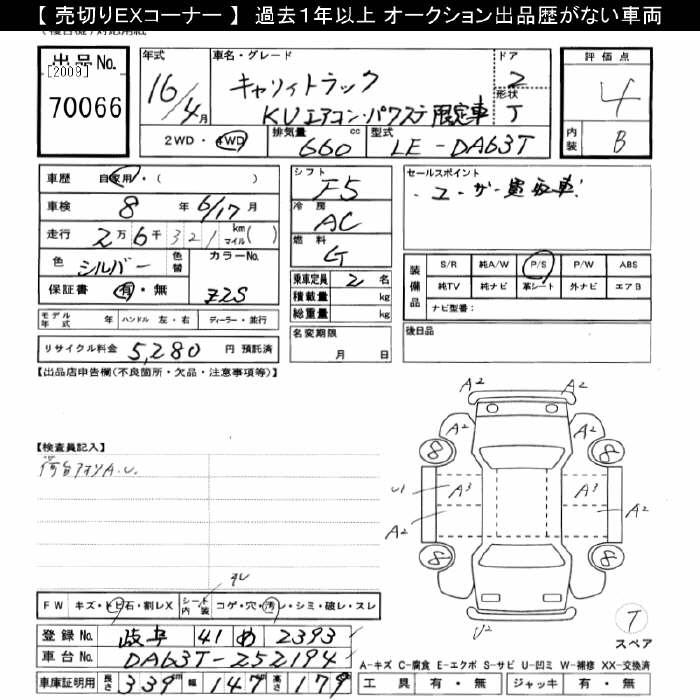 【 売切りEXコーナー 】 過去1年以上 オークション出品歴がない車両
出品No.
[2009]
70066
年式
16/4月
車名・グレード
キャリィトラック
KUエアコン・パワステ限定車
ドア
2
形状
T
評価点
4
内装
B
2WD・4WD
排気量
660 cc
型式
LE-DA63T
車歴 自家用・( )
車検 8 年 6/17 月
走行 2万6千321 km マイル( )
色 シルバー 色替
カラーNo.
Z2S
保証書 有・無
モデル年式 年 ハンドル 左・右 ディーラー・並行
リサイクル料金 5,280 円 預託済
シフト
F5
冷房
AC
燃料
G
乗車定員 2 名
積載量 kg
総重量 kg
名変期限
月 日
セールスポイント
・ユーザー買取車!
装備品
S/R 純A/W P/S P/W ABS
純TV 純ナビ 革シート 外ナビ エアB
ナビ型番:
後日品
【出品店申告欄(不良箇所・欠品・注意事項等)】
【検査員記入】
荷台アオリA.U.
A2 A2
A2 A2
8 8
U1 A3 A3
A2 A2
8 8
U2
T
スペア
FW キズ・トビ石・割レX シート内装 コゲ・穴・汚レ・シミ・破レ・スレ
登録No. 岐阜 41 め 2393
車台No. DA63T-252194
車庫証明用 長さ 339 幅 147 高さ 179
A-キズ C-腐食 E-エクボ S-サビ U-凹ミ W-補修 XX-交換済
工具 有・無 ジャッキ 有・無